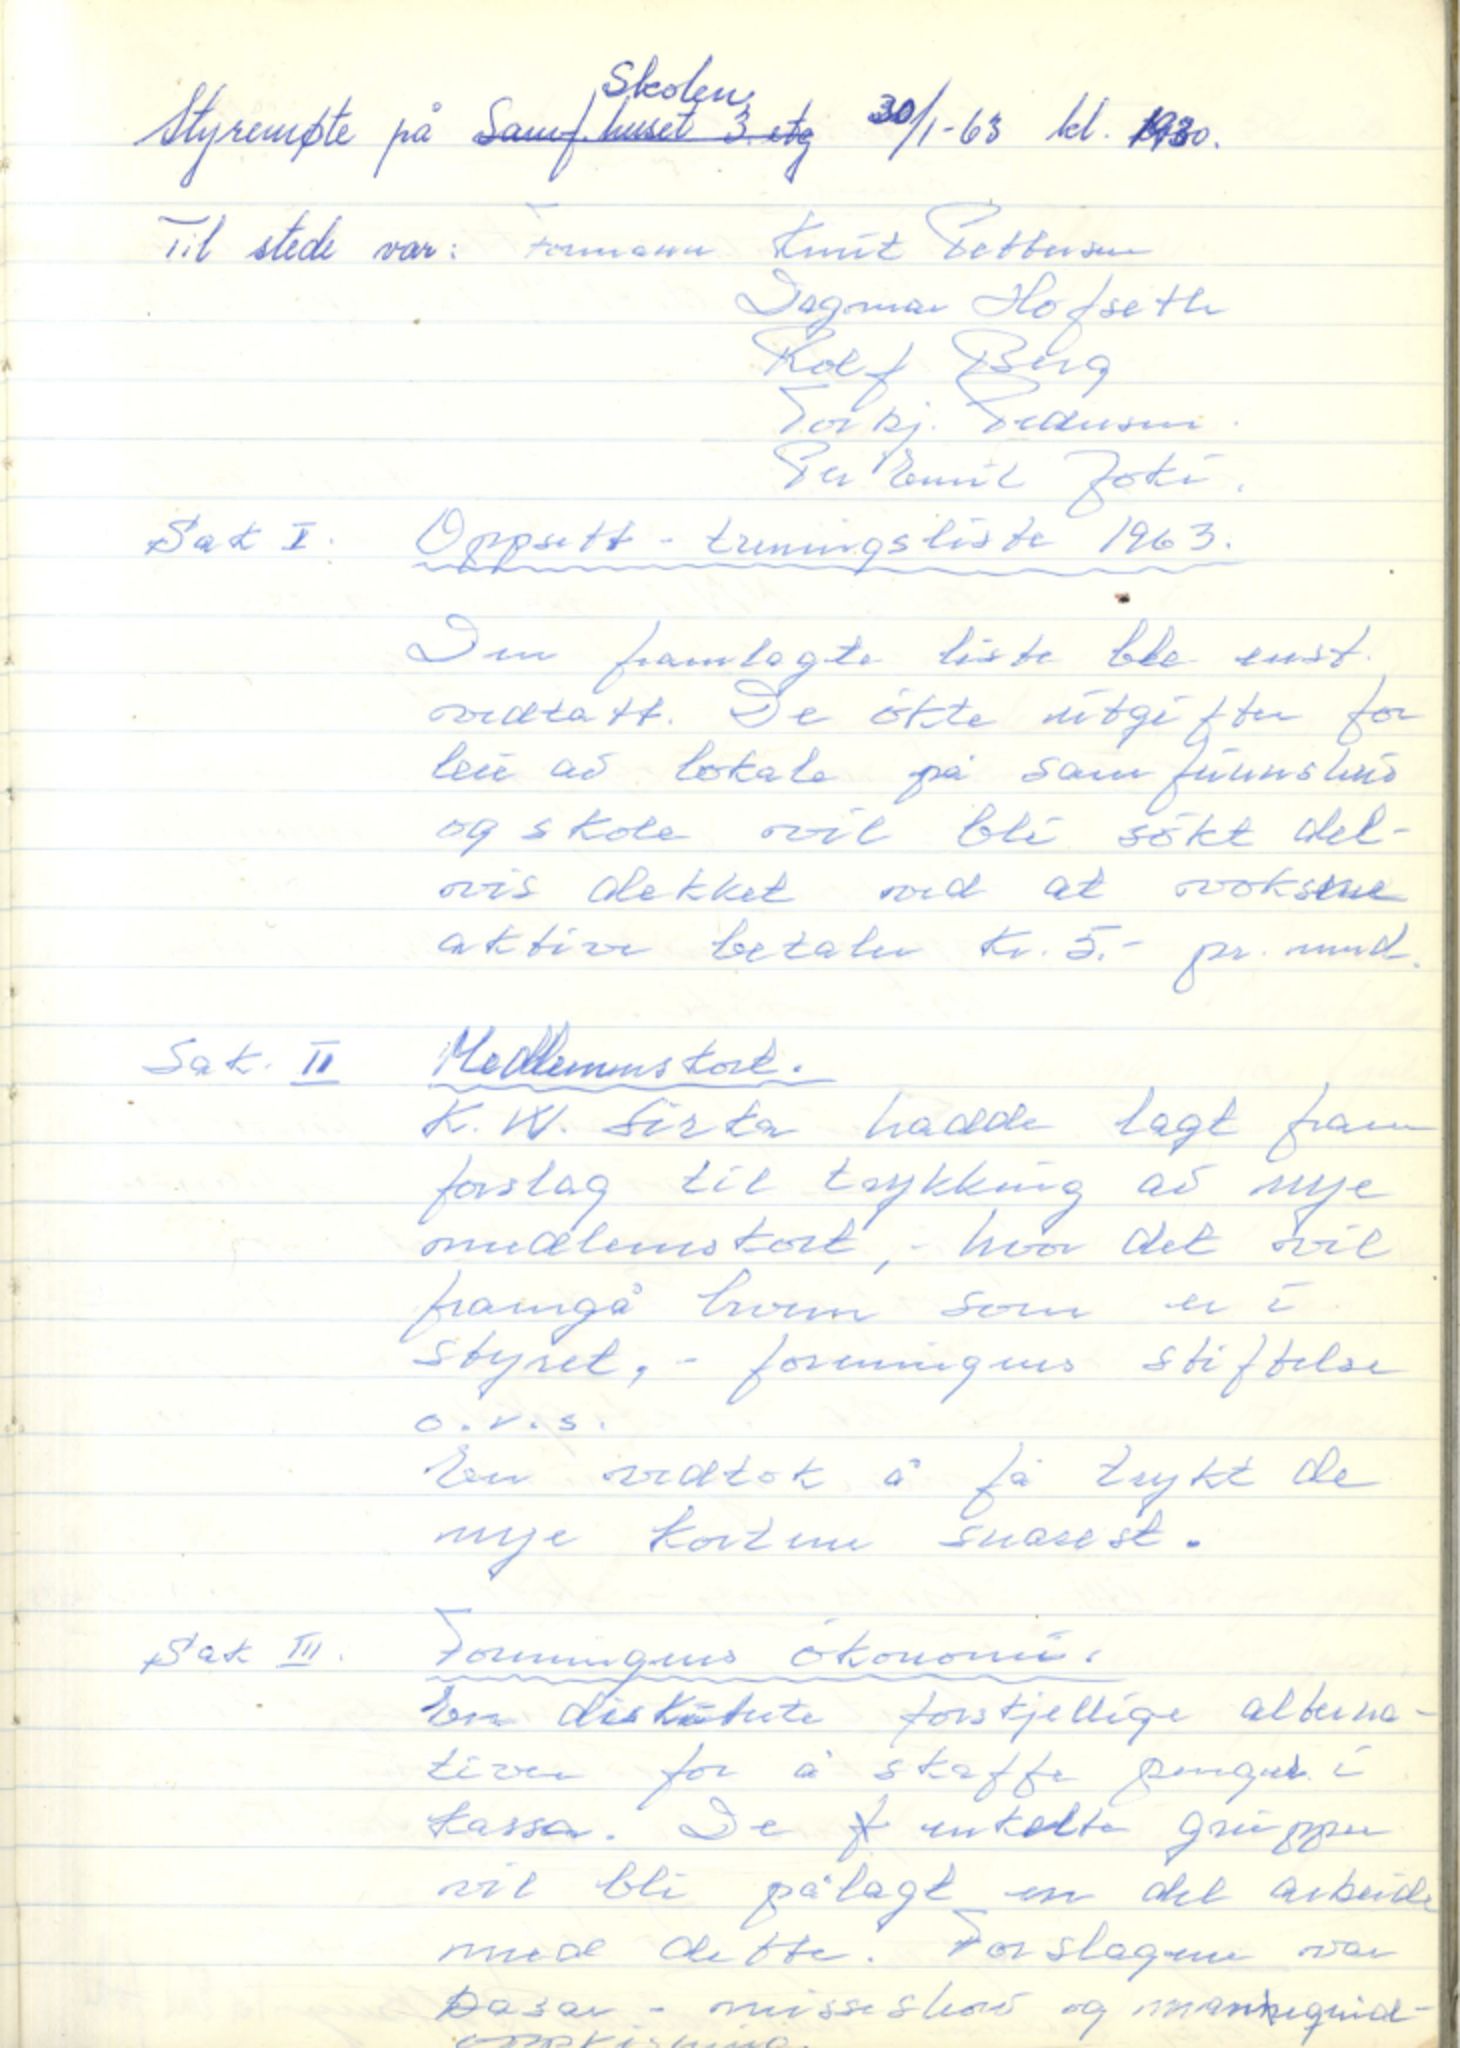 Skolen
Styremøte på Samf.huset 3. etg 30/1-63 kl. 1930.
Til stede var: Formann Knut Pettersen
Dagmar Hofseth
Rolf Berg
Torbj. Pedersen.
Per Emil Joki.
Sak I. Oppsett - treningsliste 1963.
Den framlagte liste ble enst.
vedtatt. De ökte utgifter for
leie av lokale på samfunnshus
og skole vil bli sökt del-
vis dekket ved at voksene
aktive betaler kr. 5.- pr. mnd.
Sak. II Medlemmskort.
K. W. Sirka hadde lagt fram
forslag til trykking av nye
medlemskort, - hvor det vil
framgå hvem som er i
styret, - foreningens stiftelse
o.v.s.
En vedtok å få trykt de
nye kortene snarest.
Sak III. Foreningens ökonomi.
En diskuterte forskjellige alterna-
tiver for å skaffe penger i
kassa. De enkelte grupper
vil bli pålagt en del arbeide
med dette. Forslagene var
Basar - misseshow og mannequind-
oppvisning.